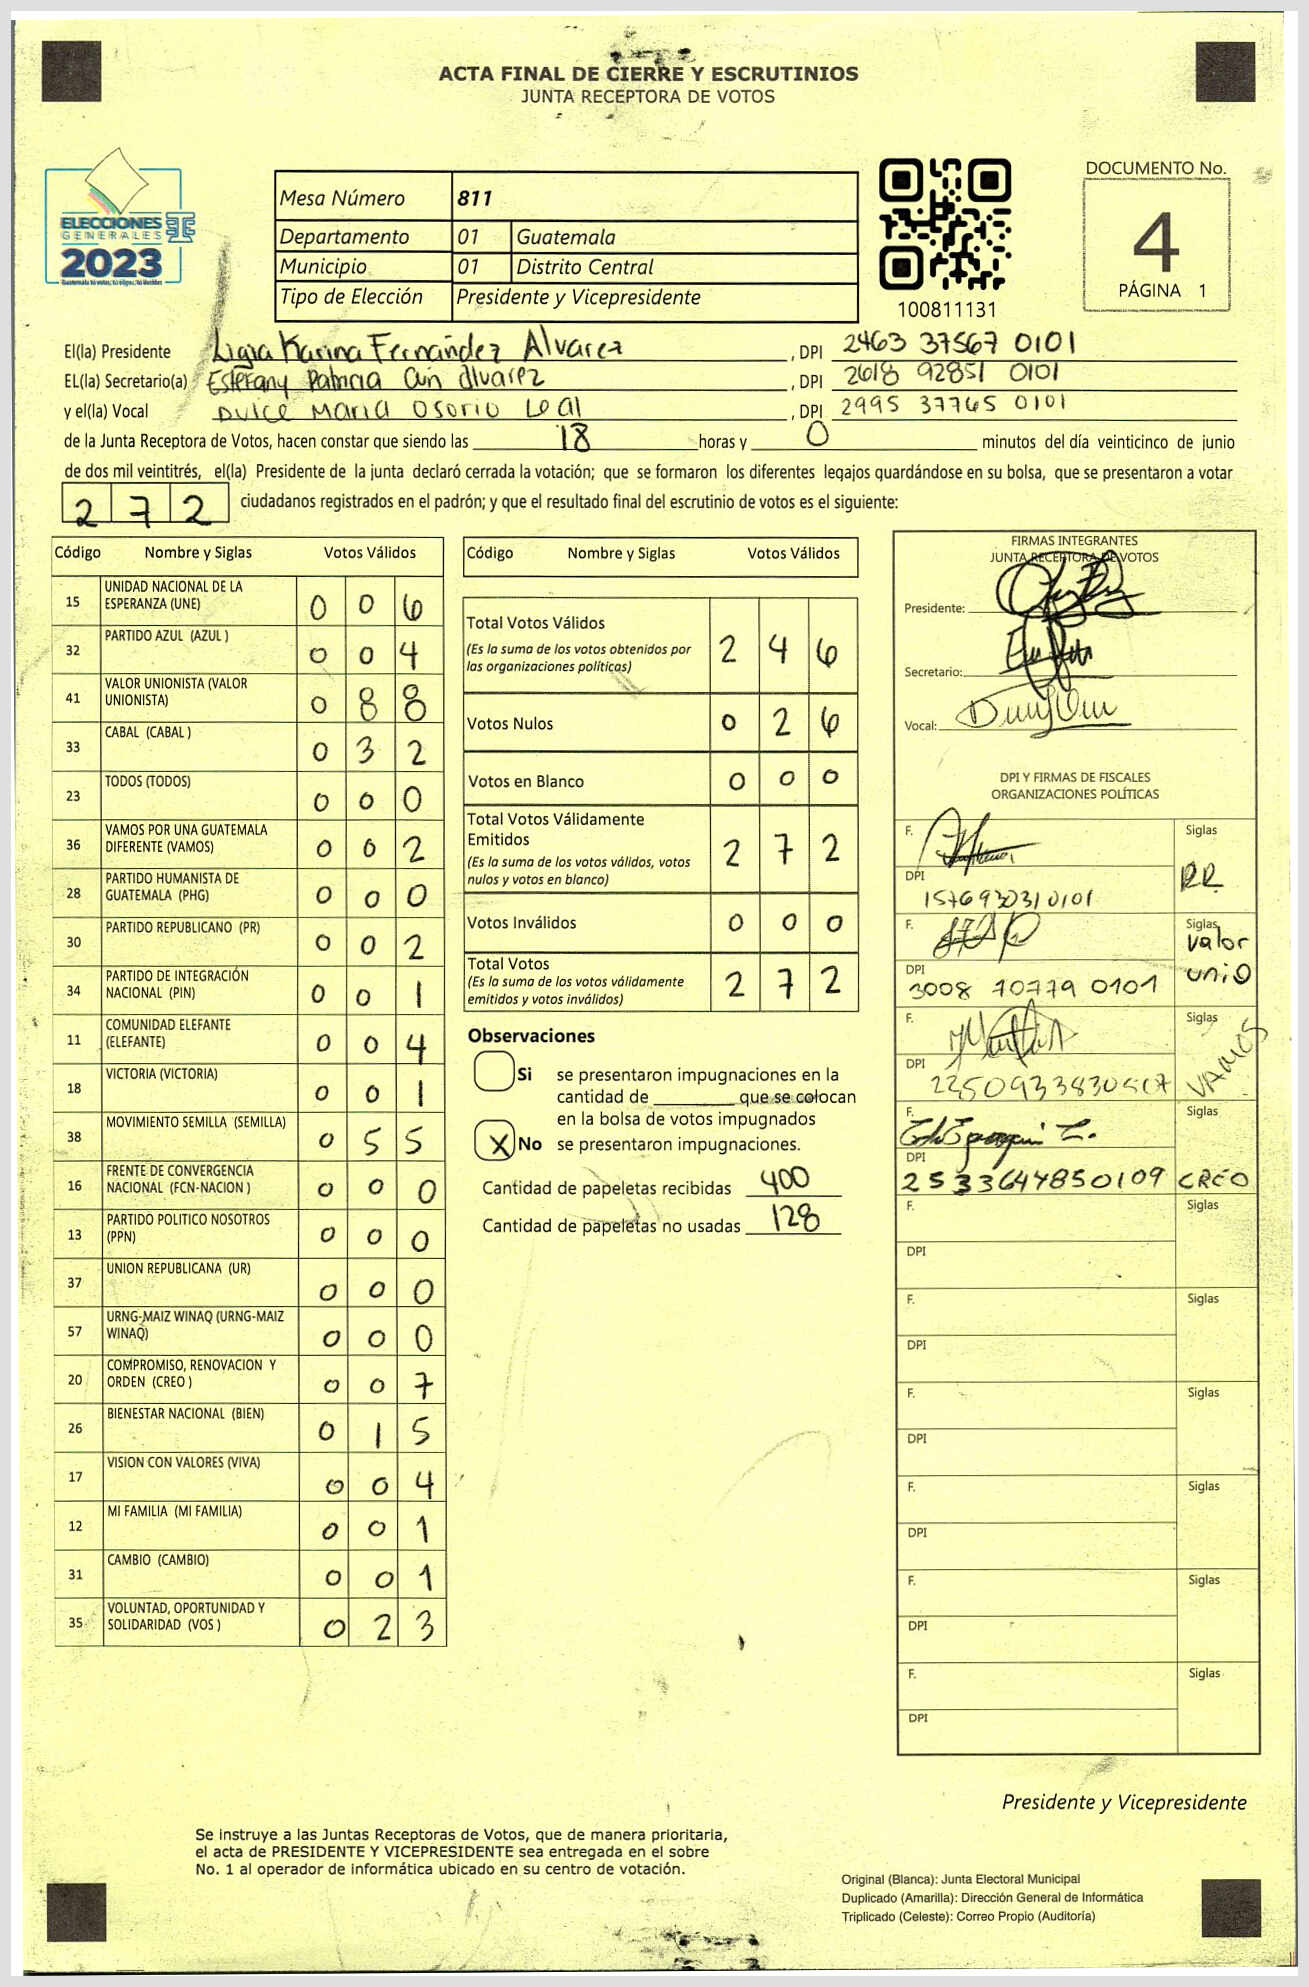 ACTA FINAL DE CIERRE Y ESCRUTINIOS
JUNTA RECEPTORA DE VOTOS
ELECCIONES
GENERALES
2023
Mesa Número 811
Departamento 01 Guatemala
Municipio 01 Distrito Central
Tipo de Elección Presidente y Vicepresidente
100811131
DOCUMENTO No.
4
PÁGINA 1
El(la) Presidente Ligia Karina Fernández Alvarez, DPI 2463 37567 0101
EL(la) Secretario(a) Estefany Patricia Alvarez, DPI 2618 92851 0101
y el(la) Vocal Dulce Maria Osorio Leal, DPI 2995 37765 0101
de la Junta Receptora de Votos, hacen constar que siendo las 18 horas y 0 minutos del día veinticinco de junio
de dos mil veintitrés, el(la) Presidente de la junta declaró cerrada la votación; que se formaron los diferentes legajos guardándose en su bolsa, que se presentaron a votar
272 ciudadanos registrados en el padrón; y que el resultado final del escrutinio de votos es el siguiente:
Código Nombre y Siglas Votos Válidos
15 UNIDAD NACIONAL DE LA ESPERANZA (UNE) 0 0 6
32 PARTIDO AZUL (AZUL ) 0 0 4
41 VALOR UNIONISTA (VALOR UNIONISTA) 0 8 8
33 CABAL (CABAL ) 0 3 2
23 TODOS (TODOS) 0 0 0
36 VAMOS POR UNA GUATEMALA DIFERENTE (VAMOS) 0 0 2
28 PARTIDO HUMANISTA DE GUATEMALA (PHG) 0 0 0
30 PARTIDO REPUBLICANO (PR) 0 0 2
34 PARTIDO DE INTEGRACIÓN NACIONAL (PIN) 0 0 1
11 COMUNIDAD ELEFANTE (ELEFANTE) 0 0 4
18 VICTORIA (VICTORIA) 0 0 1
38 MOVIMIENTO SEMILLA (SEMILLA) 0 5 5
16 FRENTE DE CONVERGENCIA NACIONAL (FCN-NACION ) 0 0 0
13 PARTIDO POLITICO NOSOTROS (PPN) 0 0 0
37 UNION REPUBLICANA (UR) 0 0 0
57 URNG-MAIZ WINAQ (URNG-MAIZ WINAQ) 0 0 0
20 COMPROMISO, RENOVACION Y ORDEN (CREO ) 0 0 7
26 BIENESTAR NACIONAL (BIEN) 0 1 5
17 VISION CON VALORES (VIVA) 0 0 4
12 MI FAMILIA (MI FAMILIA) 0 0 1
31 CAMBIO (CAMBIO) 0 0 1
35 VOLUNTAD, OPORTUNIDAD Y SOLIDARIDAD (VOS ) 0 2 3
Código Nombre y Siglas Votos Válidos
Total Votos Válidos 2 4 6
(Es la suma de los votos obtenidos por
las organizaciones políticas)
Votos Nulos 0 2 6
Votos en Blanco 0 0 0
Total Votos Válidamente
Emitidos 2 7 2
(Es la suma de los votos válidos, votos
nulos y votos en blanco)
Votos Inválidos 0 0 0
Total Votos 2 7 2
(Es la suma de los votos válidamente
emitidos y votos inválidos)
Observaciones
Si se presentaron impugnaciones en la
cantidad de ________ que se colocan
en la bolsa de votos impugnados
X No se presentaron impugnaciones.
Cantidad de papeletas recibidas 400
Cantidad de papeletas no usadas 128
FIRMAS INTEGRANTES
JUNTA RECEPTORA DE VOTOS
Presidente:
Secretario:
Vocal:
DPI Y FIRMAS DE FISCALES
ORGANIZACIONES POLÍTICAS
F. Siglas
DPI
F. Siglas Valor
DPI unio
3008 70779 0101
F. Siglas VAMOS
DPI
F. Siglas
DPI
2533644850109 CREO
F. Siglas
DPI
F. Siglas
DPI
F. Siglas
DPI
F. Siglas
DPI
F. Siglas
DPI
F. Siglas
DPI
Presidente y Vicepresidente
Se instruye a las Juntas Receptoras de Votos, que de manera prioritaria,
el acta de PRESIDENTE Y VICEPRESIDENTE sea entregada en el sobre
No. 1 al operador de informática ubicado en su centro de votación.
Original (Blanca): Junta Electoral Municipal
Duplicado (Amarilla): Dirección General de Informática
Triplicado (Celeste): Correo Propio (Auditoría)